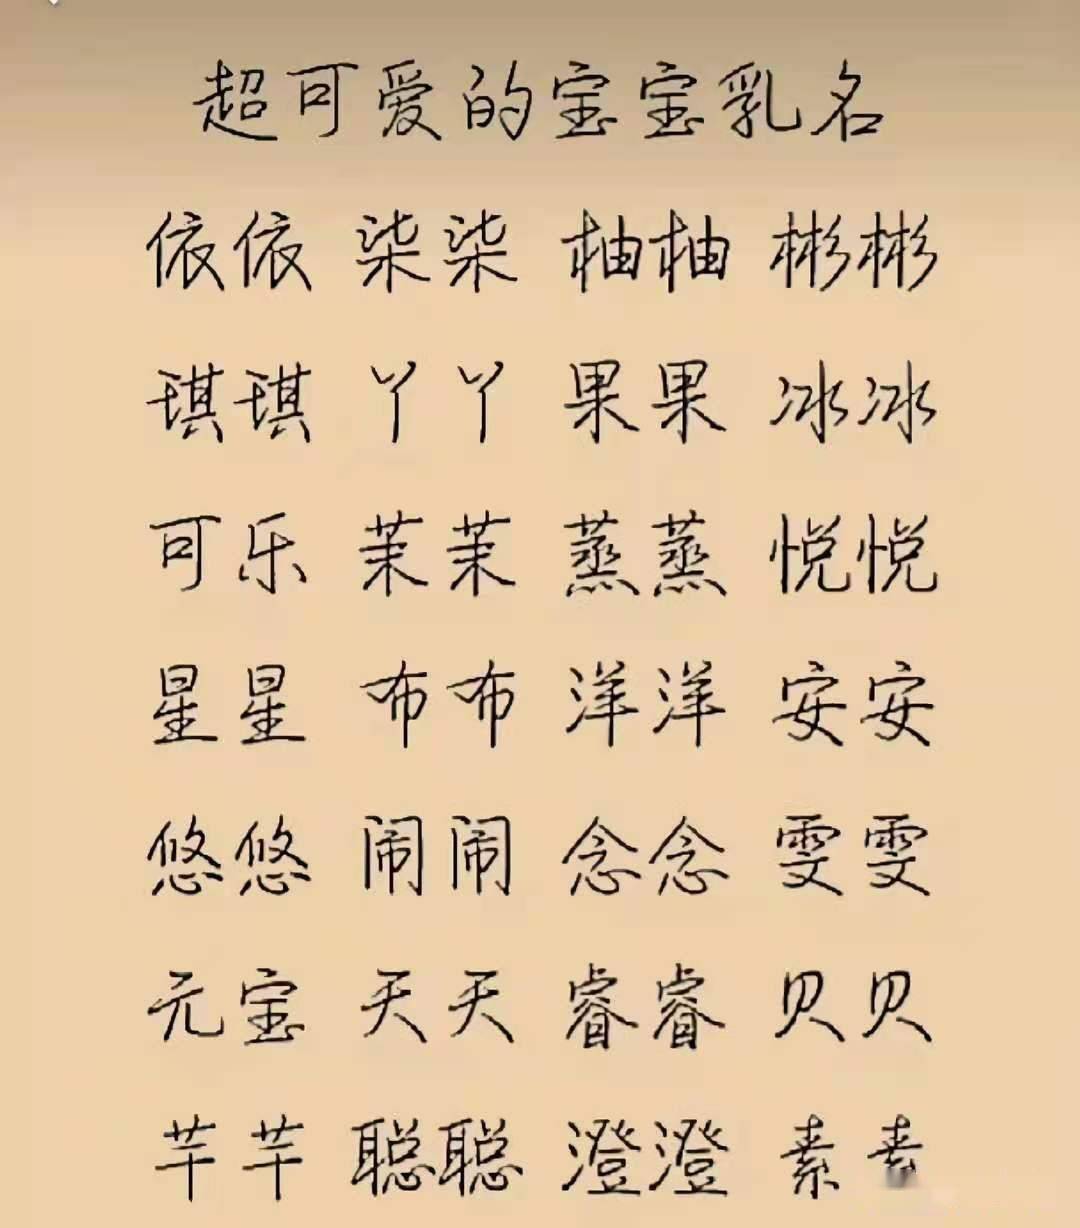 超可爱的宝宝乳名
依依 柒柒 柚柚 彬彬
琪琪 丫丫 果果 冰冰
可乐 茉茉 蒸蒸 悦悦
星星 布布 洋洋 安安
悠悠 闹闹 念念 雯雯
元宝 天天 睿睿 贝贝
芊芊 聪聪 澄澄 素素